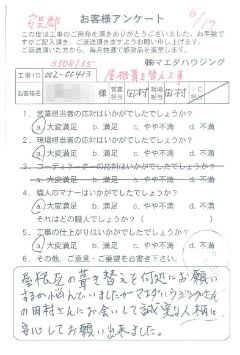 6/17
お客様アンケート
この度は工事のご用命を頂きありがとうございました。お手数
ですがご記入頂き、ご返送頂きますようお願い申し上げます。
ご返送頂いた方から、毎月抽選で感謝品を進呈します。
5308135
㈱マエダハウジング
工事ID 002-00413
屋根葺き替え工事
様 営業担当 田村 現場担当 田村
1. 営業担当者の応対はいかがでしたでしょうか？
a. 大変満足 b. 満足 c. やや不満 d. 不満
2. 現場担当者の応対はいかがでしたでしょうか？
a. 大変満足 b. 満足 c. やや不満 d. 不満
3. コーディネーターの応対はいかがでしたでしょうか？
a. 大変満足 b. 満足 c. やや不満 d. 不満
4. 職人のマナーはいかがでしたでしょうか？
a. 大変満足 b. 満足 c. やや不満 d. 不満
それはどの職人でしょうか？（ ）
5. 工事の仕上がりはいかがでしたでしょうか？
a. 大変満足 b. 満足 c. やや不満 d. 不満
6. その他、ご意見・ご要望をお聞かせ下さい。
屋根瓦の葺き替えを何処にお願い
するか悩んでいましたがマエダハウジングさん
の田村さんにお会いして誠実な人柄に
安心してお願い出来ました。